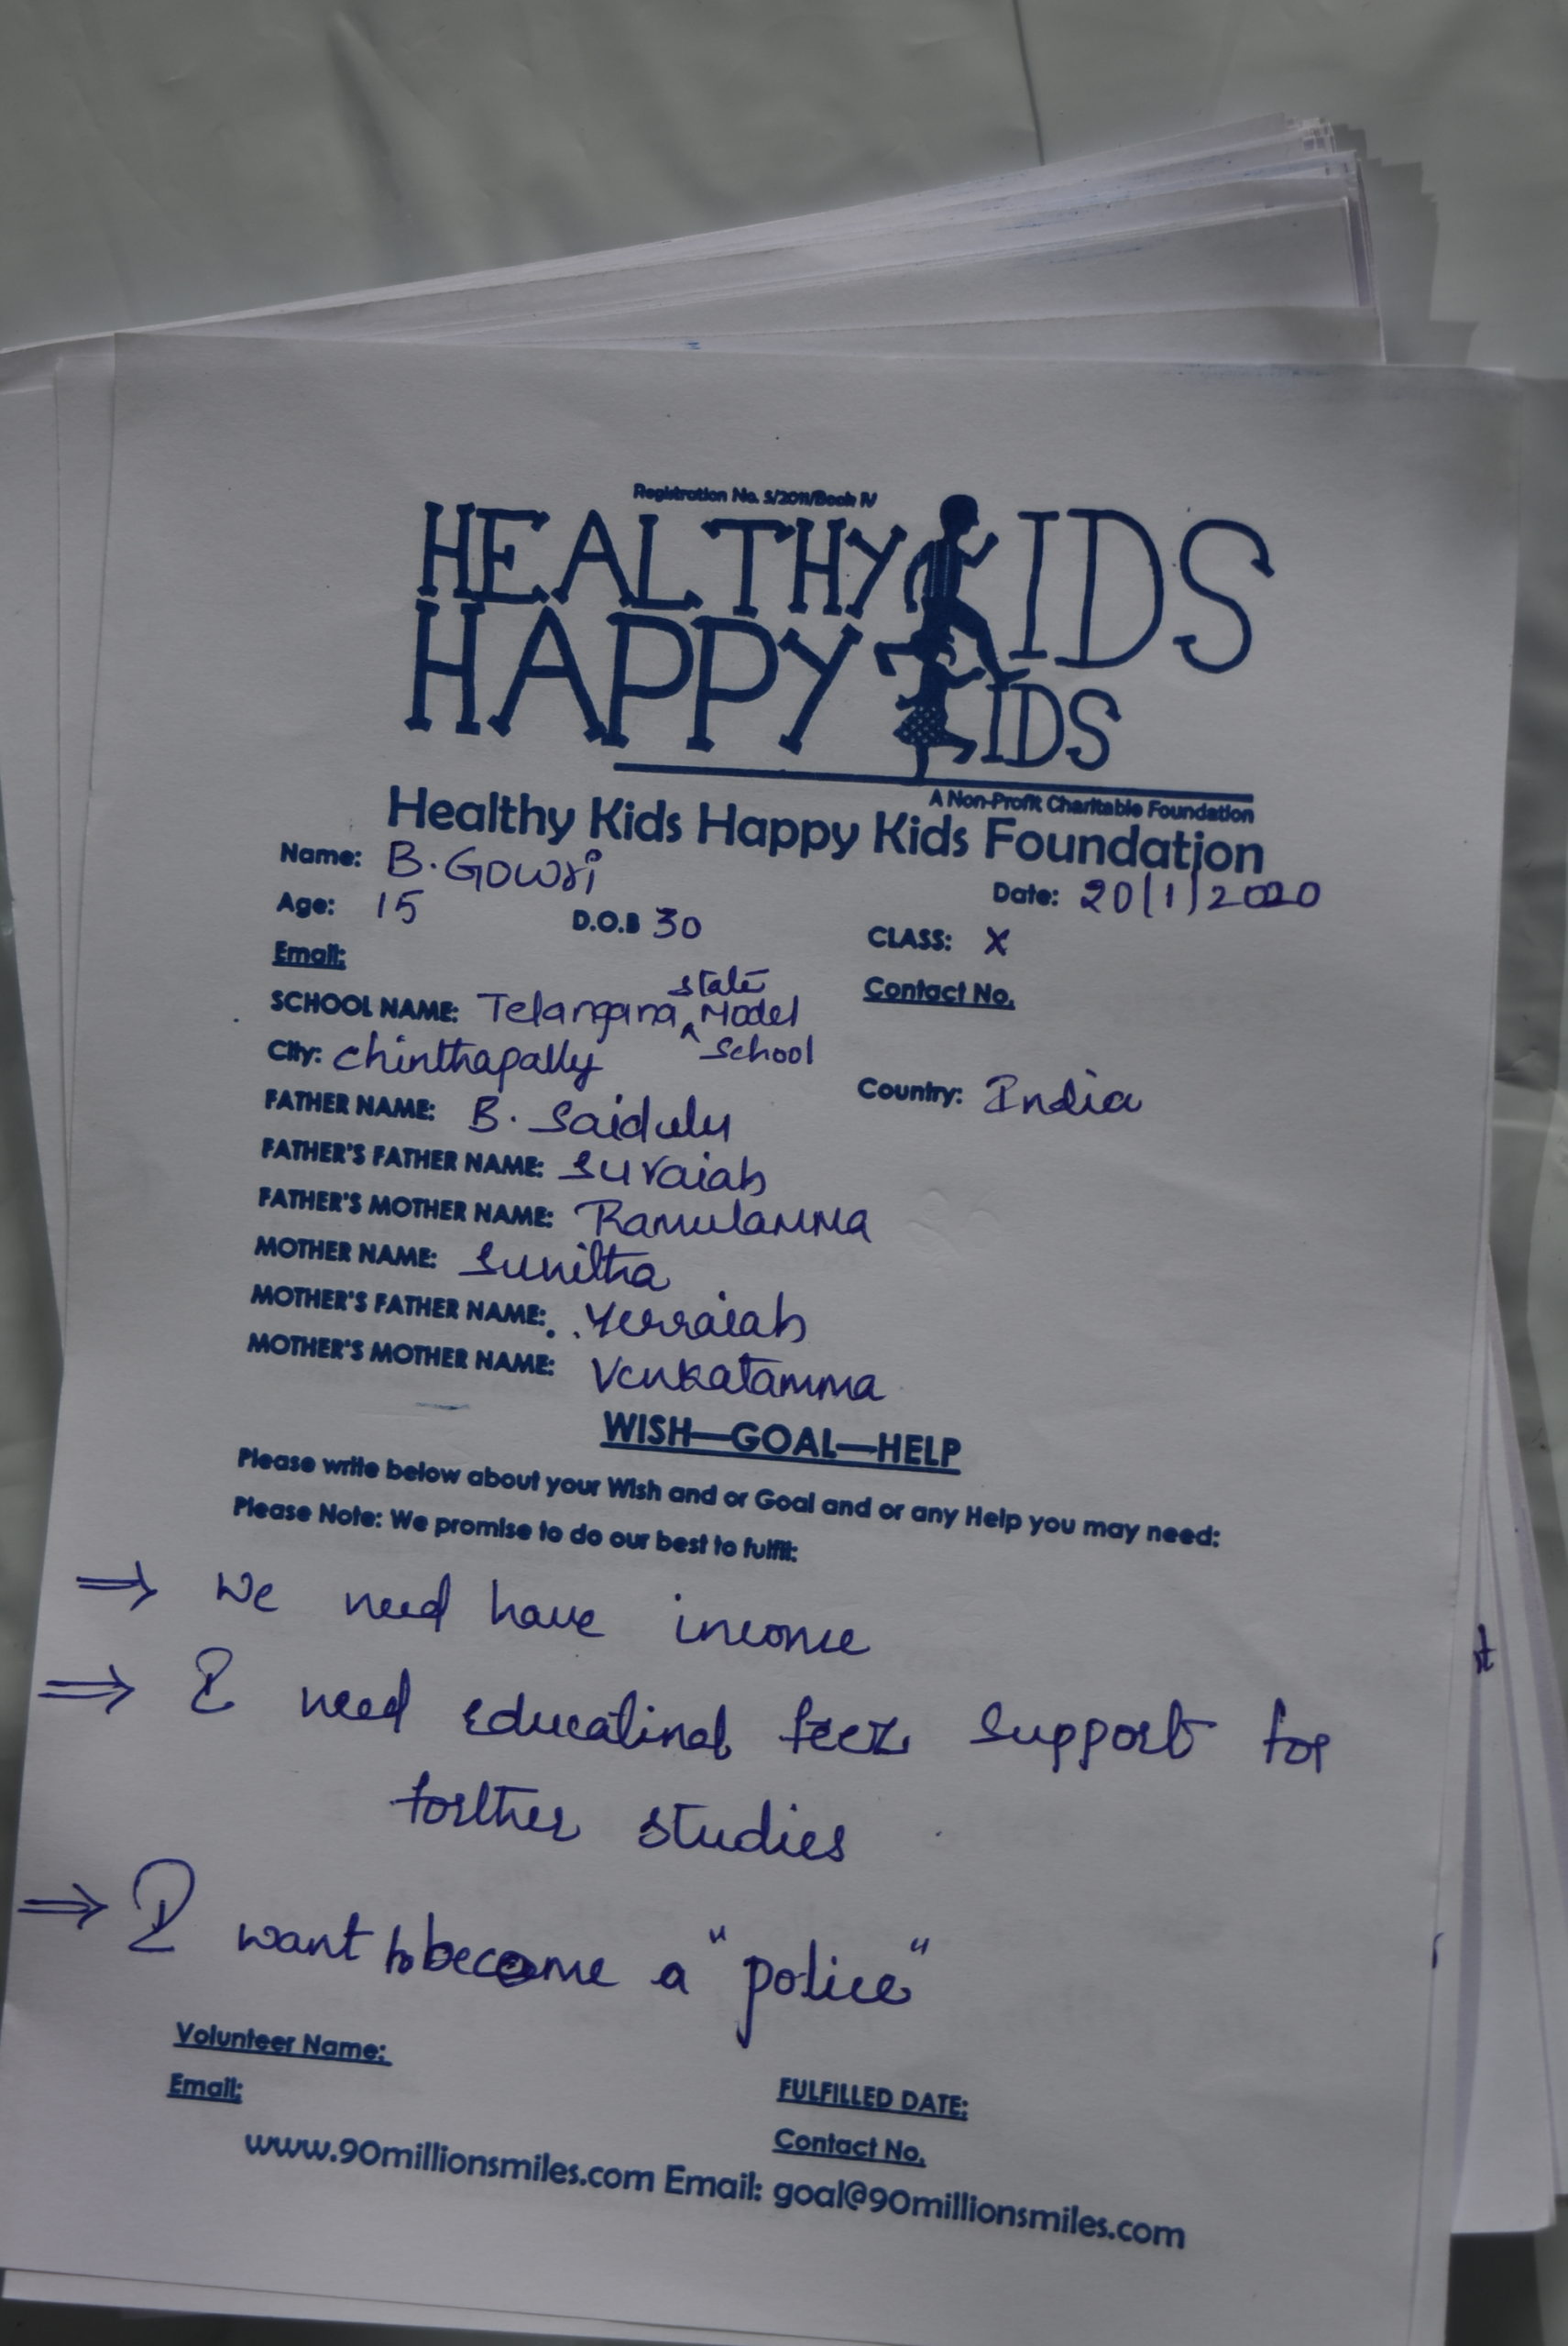 Registration No. 5/2011/Book IV
HEALTHY KIDS
HAPPY KIDS
A Non-Profit Charitable Foundation
Healthy Kids Happy Kids Foundation
Name: B. Gowri
Date: 20/1/2020
Age: 15 D.O.B 30 CLASS: X
Email: Contact No.
SCHOOL NAME: Telangana state Model School
City: chinthapally Country: India
FATHER NAME: B. Saidulu
FATHER'S FATHER NAME: Suraiah
FATHER'S MOTHER NAME: Ramulamma
MOTHER NAME: Sunitha
MOTHER'S FATHER NAME: Yerraiah
MOTHER'S MOTHER NAME: Venkatamma
WISH—GOAL—HELP
Please write below about your Wish and or Goal and or any Help you may need:
Please Note: We promise to do our best to fulfil:
⇒ We need have income
⇒ I need educatinal feez support for
forther studies
⇒ I want to become a "police"
Volunteer Name: FULFILLED DATE:
Email: Contact No.
www.90millionsmiles.com Email: goal@90millionsmiles.com